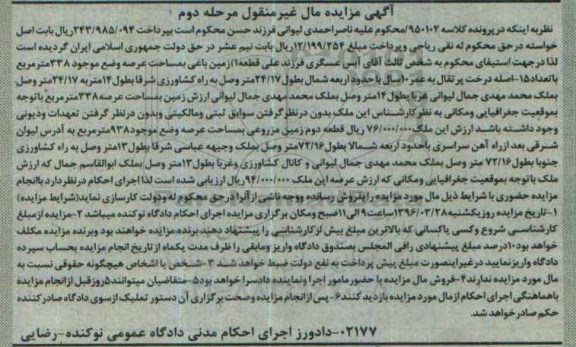 آگهی مزایده مال غیرمنقول مرحله دوم
نظر به اینکه در پرونده کلاسه 950102/محکوم علیه ناصر احمدی لیوانی فرزند حسن محکوم است بپرداخت 243/985/094ریال بابت اصل
خواسته در حق محکوم له نقی ریاحی وپرداخت مبلغ 12/199/254 ریال بابت نیم عشر در حق دولت جمهوری اسلامی ایران گردیده است
لذا در جهت استیفای محکوم به شخص ثالث آقای آیس عسگری فرزند علی قطعه 1)زمین باغی بمساحت عرصه وضع موجود 338مترمربع
باتعداد 15-اصله درخت پرتقال به عمر 10سال با حدود اربعه شمال بطول 24/17متر وصل به راه کشاورزی شرقا بطول 14متر به 24/17متر وصل
بملک محمد مهدی جمال لیوانی غربا بطول 14متر وصل بملک محمد مهدی جمال لیوانی ارزش زمین بمساحت عرصه 338مترمربع باتوجه
بموقعیت جغرافیایی ومکانی به نظر کارشناس این ملک بدون درنظر گرفتن سوابق ثبتی ومالکیتی وبدون در نظر گرفتن تعهدات ودیونی
وجود داشته باشد ارزش این ملک 76/000/000 ریال قطعه دوم زمین مزروعی بمساحت عرصه وضع موجود 938مترمربع به آدرس لیوان
شرقی بعد از راه آهن سراسری باحدود اربعه شمالا بطول 72/16متر وصل بملک وجیهه عباسی شرقا بطول 13متر وصل به راه کشاورزی
جنوبا بطول 72/16 متر وصل بملک محمد مهدی جمال لیوانی و کانال کشاورزی وغربا بطول 13متر وصل بملک ابوالقاسم جمال که ارزش
ملک باتوجه بموقعیت جغرافیایی ومکانی که ارزش عرصه این ملک 94/000/000ریال ارزیابی شده است لذا اجرای احکام درنظر دارد باانجام
مزایده حضوری با شرایط ذیل مال مورد مزایده را بفروش رسانده ووجه ناشی از آنرا در حق محکوم له ودولت کارسازی نماید(شرایط مزایده)
1-تاریخ مزایده روز یکشنبه 1396/03/28ساعت 9الی 11صبح ومکان برگزاری مزایده اجرای احکام دادگاه نوکنده میباشد 2-مزایده از مبلغ
کارشناسی شروع وکسی یاکسانی که بالاترین مبلغ بیش از کارشناسی را پیشنهاد دهند برنده مزایده خواهند بود وبرنده مزایده مکلف
خواهد بود 10درصد مبلغ پیشنهادی رافی المجلس بصندوق دادگاه واریز ومابقی را ظرف مدت یکماه از تاریخ انجام مزایده بحساب سپرده
دادگاه واریز نمایند در غیر اینصورت مبلغ پیش پرداخت به نفع دولت ضبط خواهد شد 3-شخص یا اشخاص هیچگونه حقوقی نسبت به
مال مورد مزایده ندارند 4-فروش مال مزایده با حضور مامور اجرا ونماینده دادسرا خواهد بود 5-متقاضیان میتوانند 5روز قبل از انجام مزایده
باهماهنگی اجرای احکام از مال مورد مزایده بازدید کنند 6-پس از انجام مزایده وصحت برگزاری آن دستور تملیک از سوی دادگاه صادر کننده
حکم صادر خواهد شد.
02177-دادورز اجرای احکام مدنی دادگاه عمومی نوکنده-رضایی